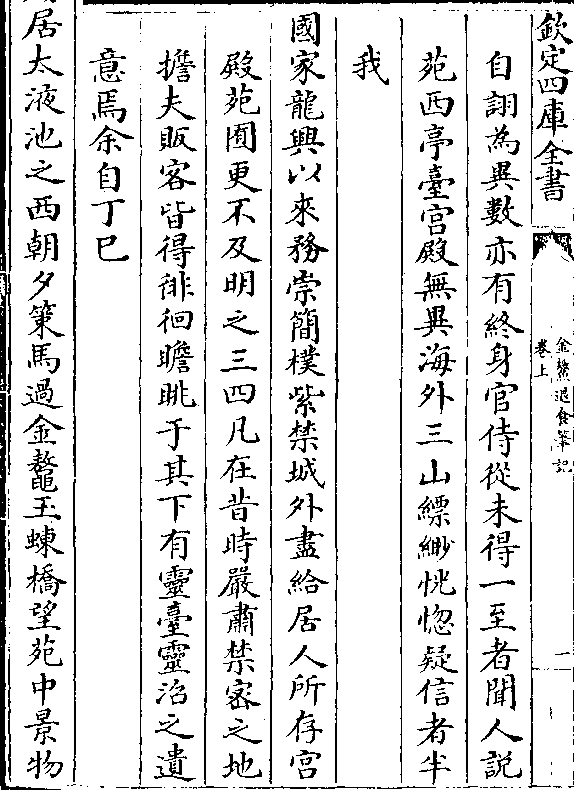 欽定四庫全書
金鰲退食筆記
卷上
一
自詡為異數亦有終身官侍從未得一至者聞人説
苑西亭臺宮殿無異海外三山縹緲恍惚疑信者半
我
國家龍興以來務崇簡樸紫禁城外盡給居人所存宮
殿苑囿更不及明之三四凡在昔時嚴肅禁宻之地
擔夫販客皆得徘徊瞻眺于其下有靈臺靈沼之遺
意焉余自丁巳
居太液池之西朝夕策馬過金鼇玉蝀橋望苑中景物